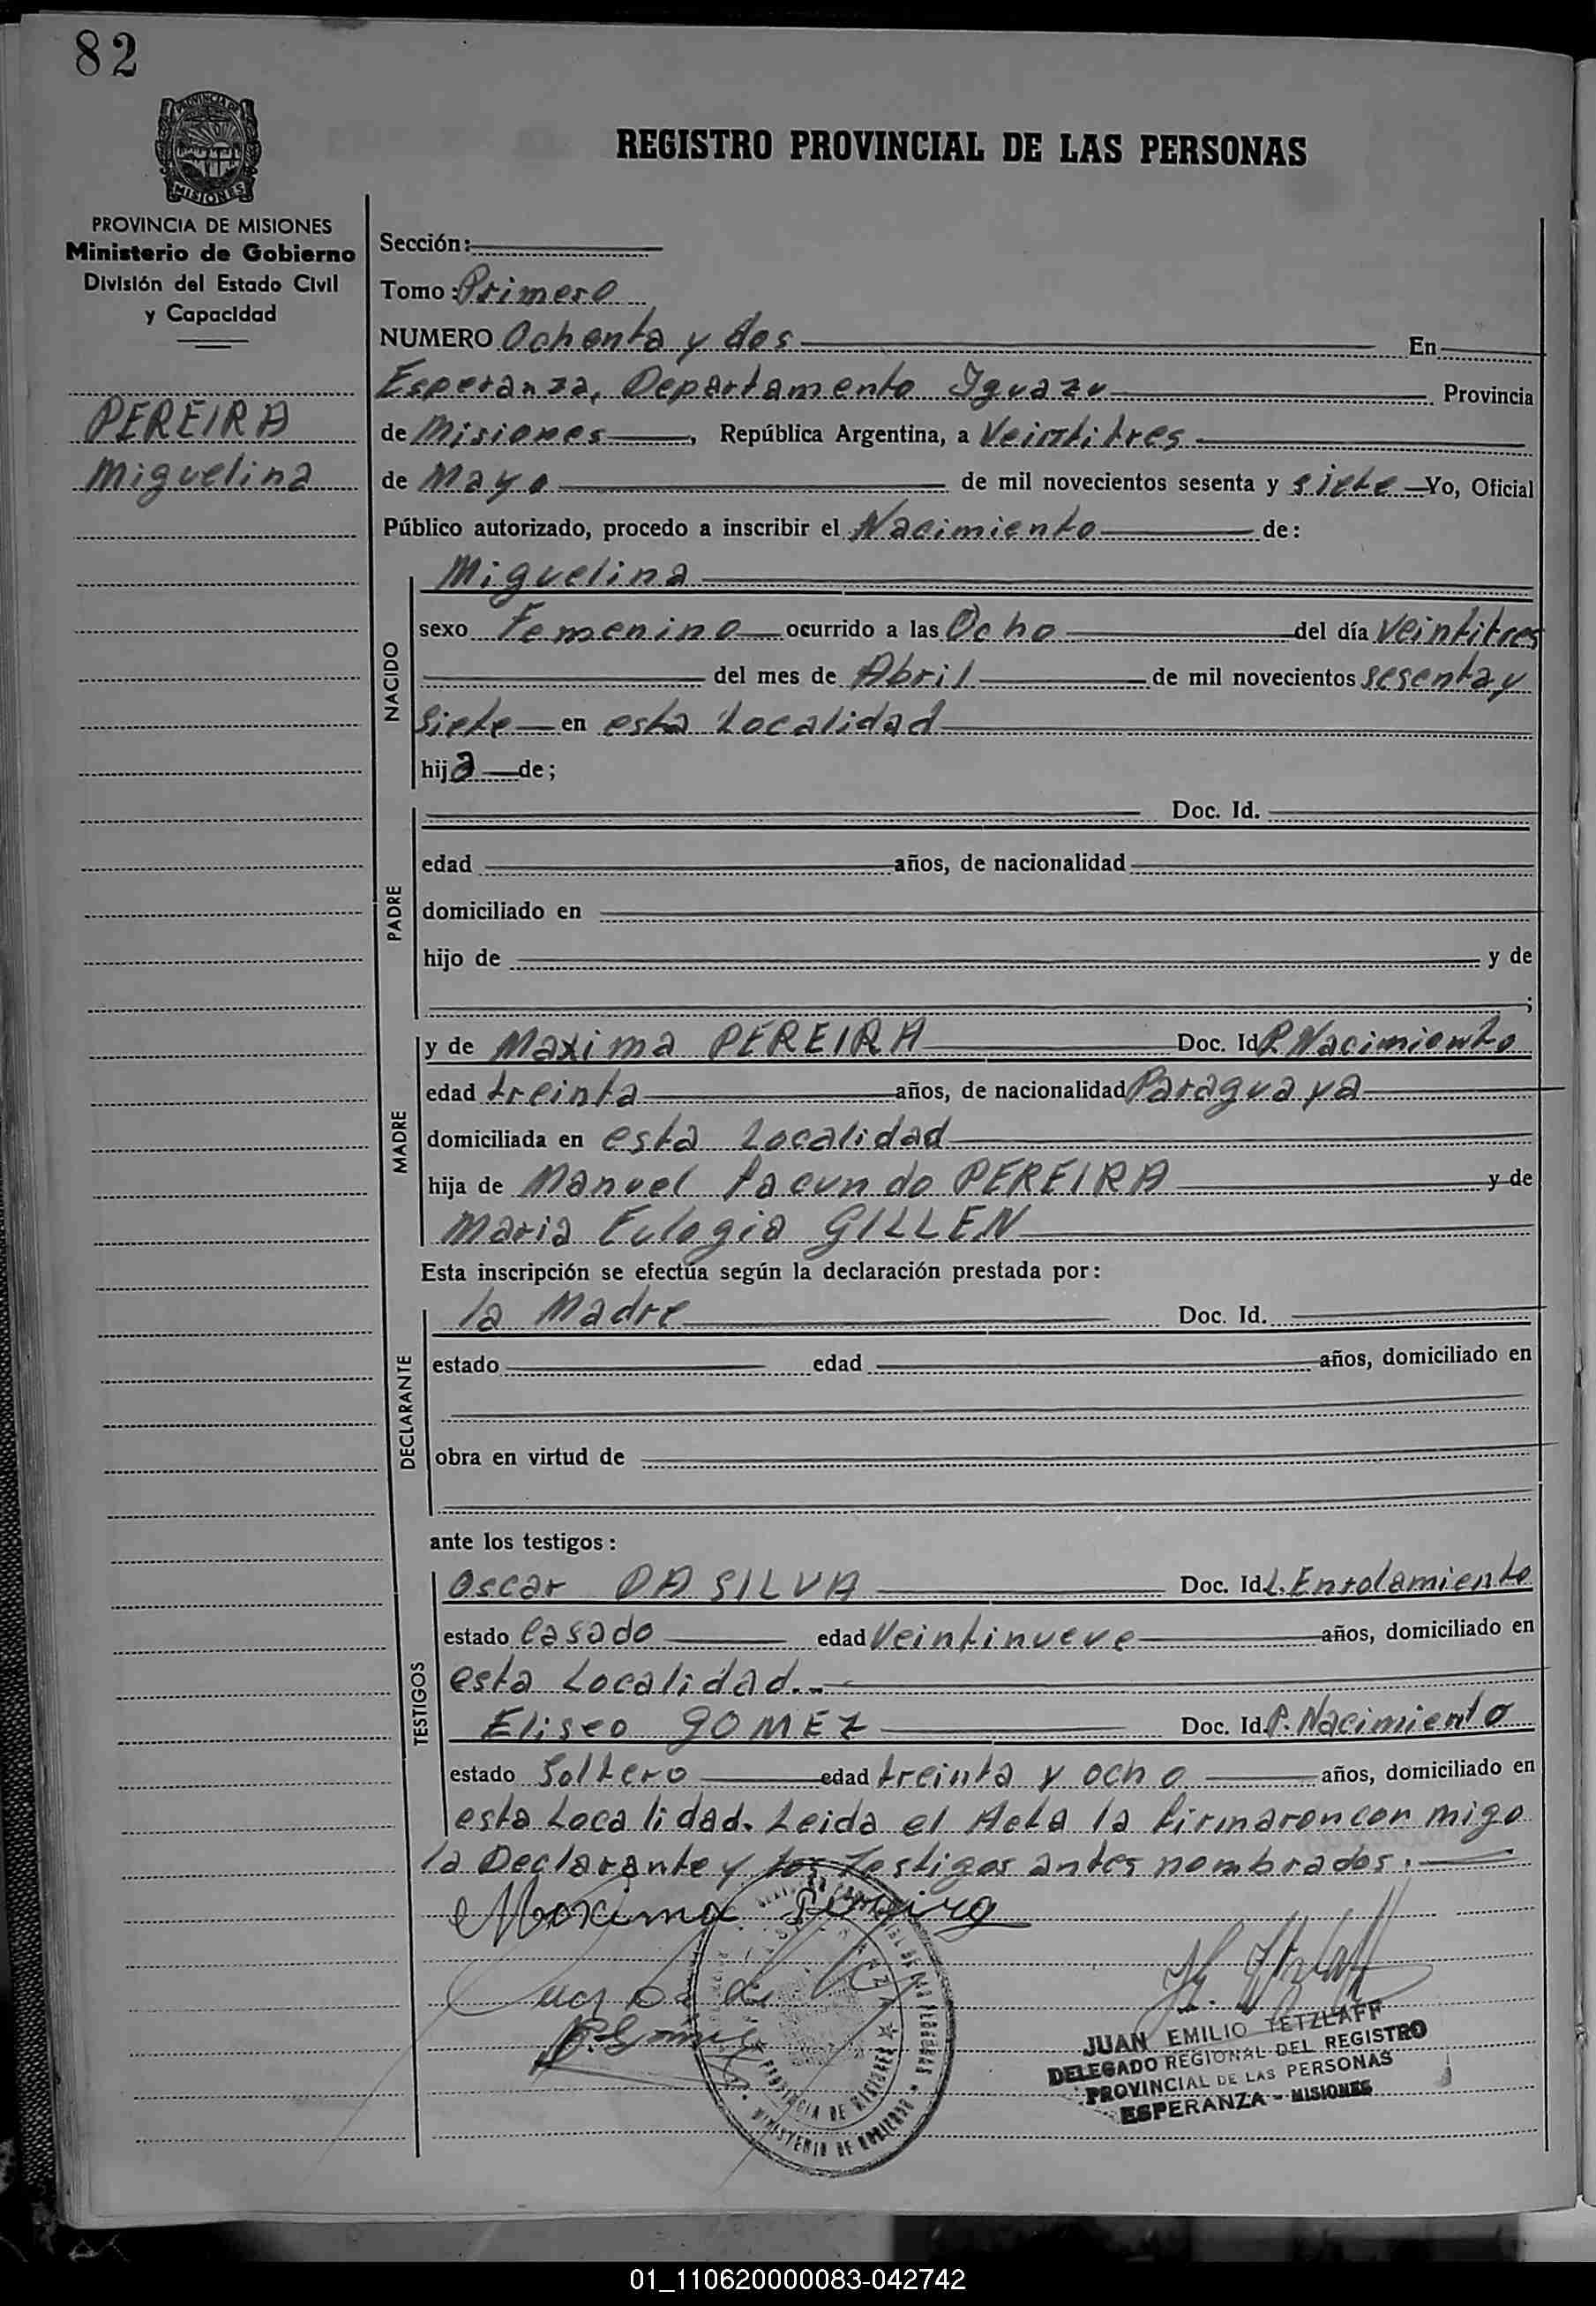 82
PROVINCIA DE
MISIONES
REGISTRO PROVINCIAL DE LAS PERSONAS
PROVINCIA DE MISIONES
Ministerio de Gobierno
División del Estado Civil
y Capacidad
PEREIRA
Miguelina
Sección:
Tomo: Primero
NUMERO Ochenta y dos En
Esperanza, Departamento Iguazu Provincia
de Misiones, República Argentina, a Veintitres
de Mayo de mil novecientos sesenta y siete Yo, Oficial
Público autorizado, procedo a inscribir el Nacimiento de:
NACIDO
Miguelina
sexo Femenino ocurrido a las Ocho del día Veintitres
del mes de Abril de mil novecientos sesenta y
siete en esta Localidad
hija de;
PADRE
Doc. Id.
edad años, de nacionalidad
domiciliado en
hijo de y de
;
MADRE
y de Maxima PEREIRA Doc. Id P. Nacimiento
edad treinta años, de nacionalidad Paraguaya
domiciliada en esta Localidad
hija de Manuel Facundo PEREIRA y de
Maria Eulogia GILLEN
Esta inscripción se efectúa según la declaración prestada por:
DECLARANTE
la Madre Doc. Id.
estado edad años, domiciliado en
obra en virtud de
ante los testigos:
TESTIGOS
Oscar DA SILVA Doc. Id L. Enrolamiento
estado Casado edad Veintinueve años, domiciliado en
esta Localidad.-
Eliseo GOMEZ Doc. Id P. Nacimiento
estado Soltero edad treinta y ocho años, domiciliado en
esta Localidad. Leida el Acta la firmaron con migo
la Declarante y los Testigos antes nombrados.
Maxima Pereira
PROVINCIA DE MISIONES
MINISTERIO DE GOBIERNO
JUAN EMILIO TETZLAFF
DELEGADO REGIONAL DEL REGISTRO
PROVINCIAL DE LAS PERSONAS
ESPERANZA - MISIONES
01_110620000083-042742